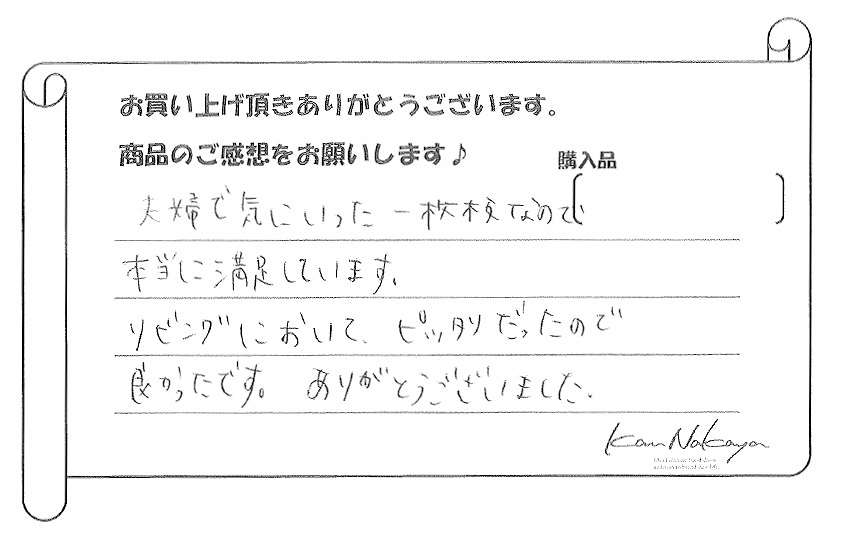 お買い上げ頂きありがとうございます。
商品のご感想をお願いします♪
購入品
夫婦で気にいった一枚板なので
本当に満足しています。
リビングにおいて、ピッタリだったので
良かったです。 ありがとうございました、
Kan Nakaya